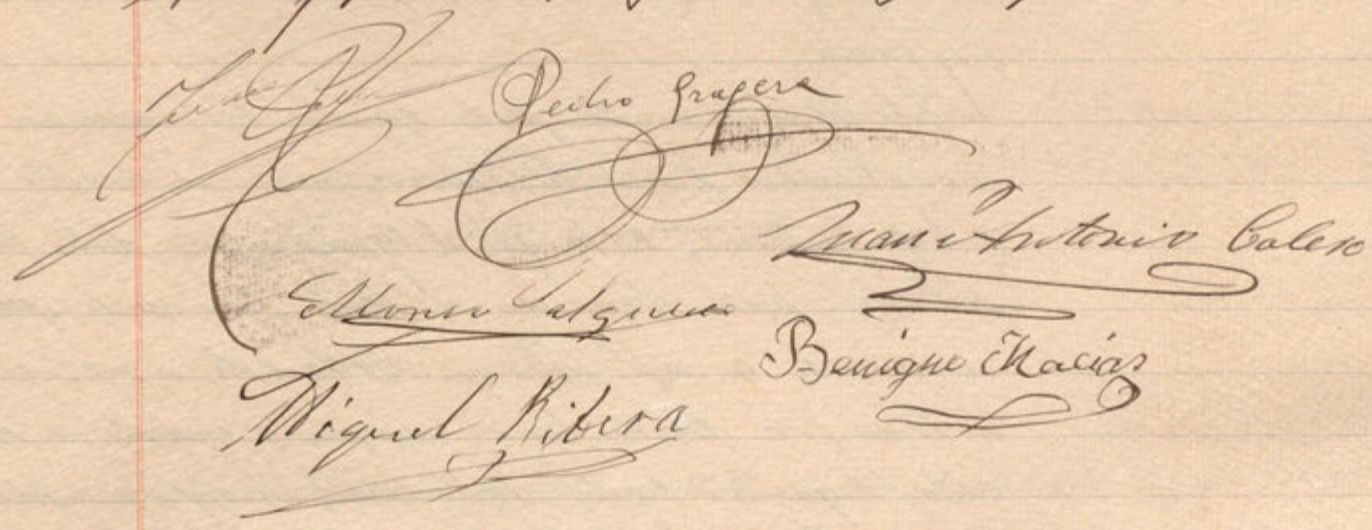 Pedro Gragera
Juan Antonio Calero
Alfonso Salguero
Benigno Macías
Miguel Ribera